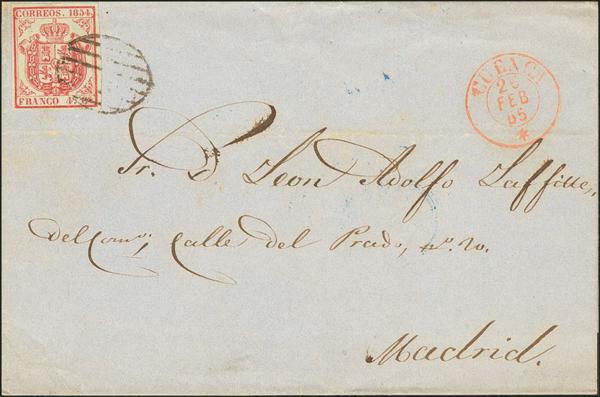 CORREOS. 1854.
FRANCO 4 Cs.
CUENCA
26
FEB
55
Sr. D. Leon Adolfo Laffitte,
Del Como, Calle del Prado, no. 20.
Madrid.